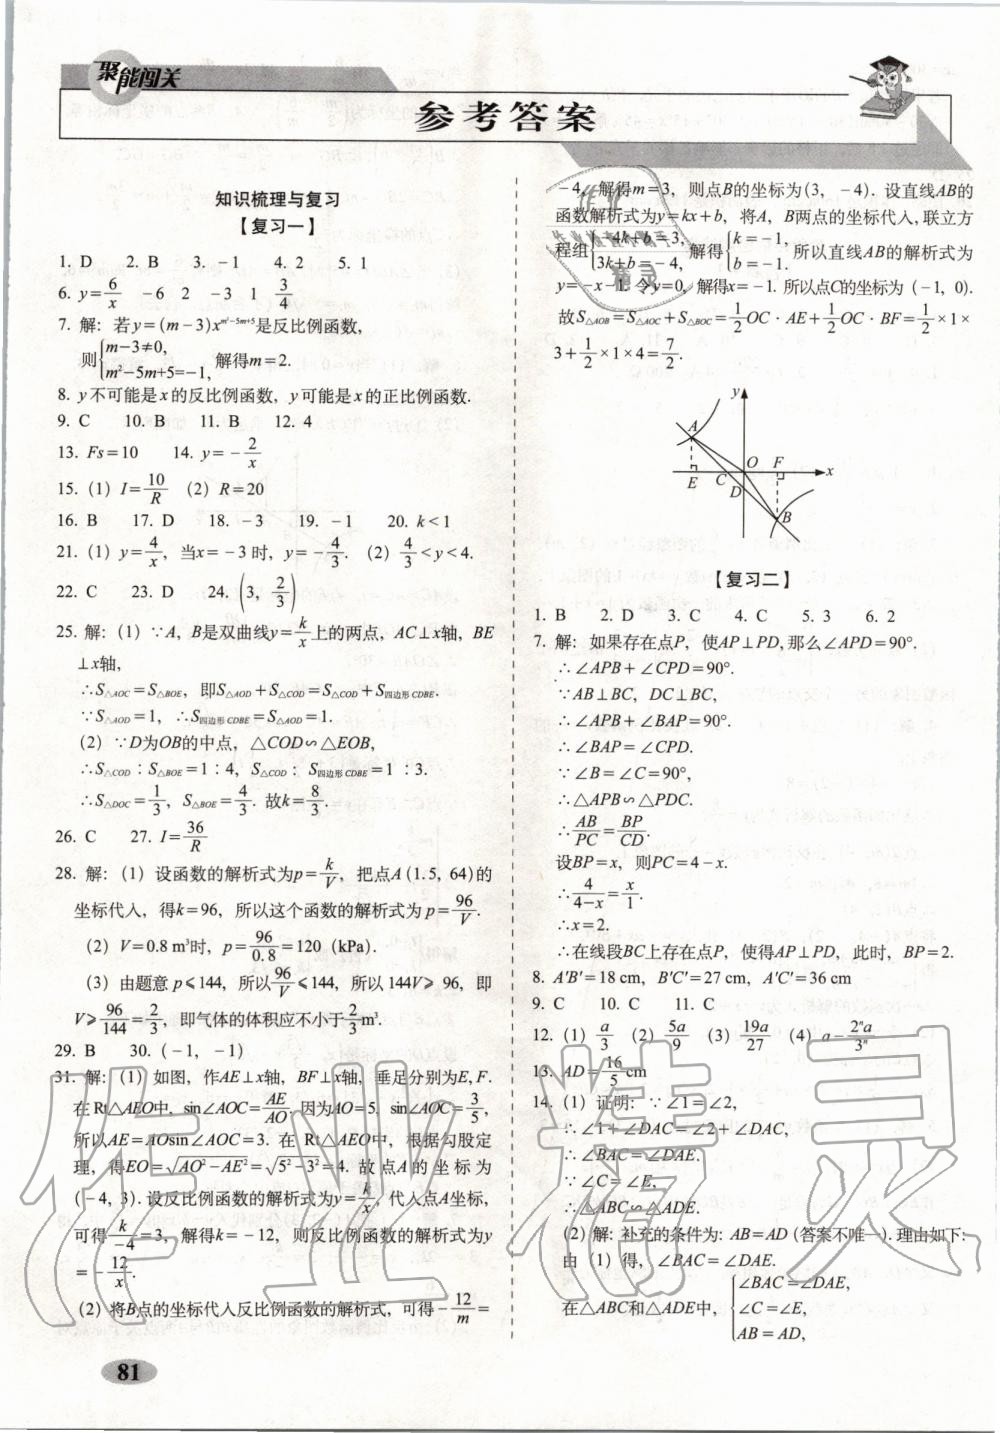 聚能闯关
参考答案
知识梳理与复习
【复习一】
1. D  2. B  3. －1  4. 2  5. 1
6. y=6/x  －6  2  －3  1  3/4
7. 解：若y=(m－3)x^(m²－5m+5)是反比例函数，
则{m－3≠0, m²－5m+5=－1, 解得m=2.
8. y不可能是x的反比例函数，y可能是x的正比例函数.
9. C  10. B  11. B  12. 4
13. Fs=10  14. y=－2/x
15. (1) I=10/R  (2) R=20
16. B  17. D  18. －3  19. －1  20. k<1
21. (1) y=4/x，当x=－3时，y=－4/3.  (2) 4/3<y<4.
22. C  23. D  24. (3, 2/3)
25. 解：(1) ∵A，B是双曲线y=k/x上的两点，AC⊥x轴，BE
⊥x轴，
∴S△AOC=S△BOE，即S△AOD+S△COD=S△COD+S四边形CDBE.
∵S△AOD=1，∴S四边形CDBE=S△AOD=1.
(2) ∵D为OB的中点，△COD∽△EOB，
∴S△COD：S△BOE=1：4，S△COD：S四边形CDBE=1：3.
∴S△DOC=1/3，S△BOE=4/3. 故k=8/3.
26. C  27. I=36/R
28. 解：(1) 设函数的解析式为p=k/V，把点A(1.5, 64)的
坐标代人，得k=96，所以这个函数的解析式为p=96/V.
(2) V=0.8 m³时，p=96/0.8=120 (kPa).
(3) 由题意p≤144，所以96/V≤144，所以144V≥96，即
V≥96/144=2/3，即气体的体积应不小于2/3m³.
29. B  30. (－1, －1)
31. 解：(1) 如图，作AE⊥x轴，BF⊥x轴，垂足分别为E, F.
在Rt△AEO中，sin∠AOC=AE/AO. 因为AO=5. sin∠AOC=3/5，
所以AE=AOsin∠AOC=3. 在Rt△AEO中，根据勾股定
理，得EO=√(AO²－AE²)=√(5²－3²)=4. 故点A的坐标为
(－4, 3). 设反比例函数的解析式为y=k/x，代人点A坐标，
可得k/－4=3，解得k=－12，则反比例函数的解析式为y
=－12/x.
(2) 将B点的坐标代人反比例函数的解析式，可得－12/m=
81
－4，解得m=3，则点B的坐标为(3, －4). 设直线AB的
函数解析式为y=kx+b，将A，B两点的坐标代人，联立方
程组{－4k+b=3, 3k+b=－4, 解得{k=－1, b=－1. 所以直线AB的解析式为
y=－x－1. 令y=0，解得x=－1. 所以点C的坐标为(－1, 0).
故S△AOB=S△AOC+S△BOC=1/2 OC·AE+1/2 OC·BF=1/2×1×
3+1/2×1×4=7/2.
y
A
O F
E C x
D
B
【复习二】
1. B  2. D  3. C  4. C  5. 3  6. 2
7. 解：如果存在点P，使AP⊥PD, 那么∠APD=90°.
∴∠APB+∠CPD=90°.
∵AB⊥BC，DC⊥BC，
∴∠APB+∠BAP=90°.
∴∠BAP=∠CPD.
∵∠B=∠C=90°，
∴△APB∽△PDC.
∴AB/PC=BP/CD.
设BP=x，则PC=4－x.
∴4/(4－x)=x/1.
∴x=2.
∴在线段BC上存在点P，使得AP⊥PD，此时，BP=2.
8. A′B′=18 cm，B′C′=27 cm，A′C′=36 cm
9. C  10. C  11. C
12. (1) a/3  (2) 5a/9  (3) 19a/27  (4) a－2ⁿa/3ⁿ
13. AD=16/5 cm
14. (1) 证明：∵∠1=∠2，
∴∠1+∠DAC=∠2+∠DAC，
∴∠BAC=∠DAE.
∵∠C=∠E，
∴△ABC∽△ADE.
(2) 解：补充的条件为：AB=AD (答案不唯一). 理由如下：
由(1)得，∠BAC=∠DAE.
在△ABC和△ADE中，{∠BAC=∠DAE, ∠C=∠E, AB=AD,
作业精灵